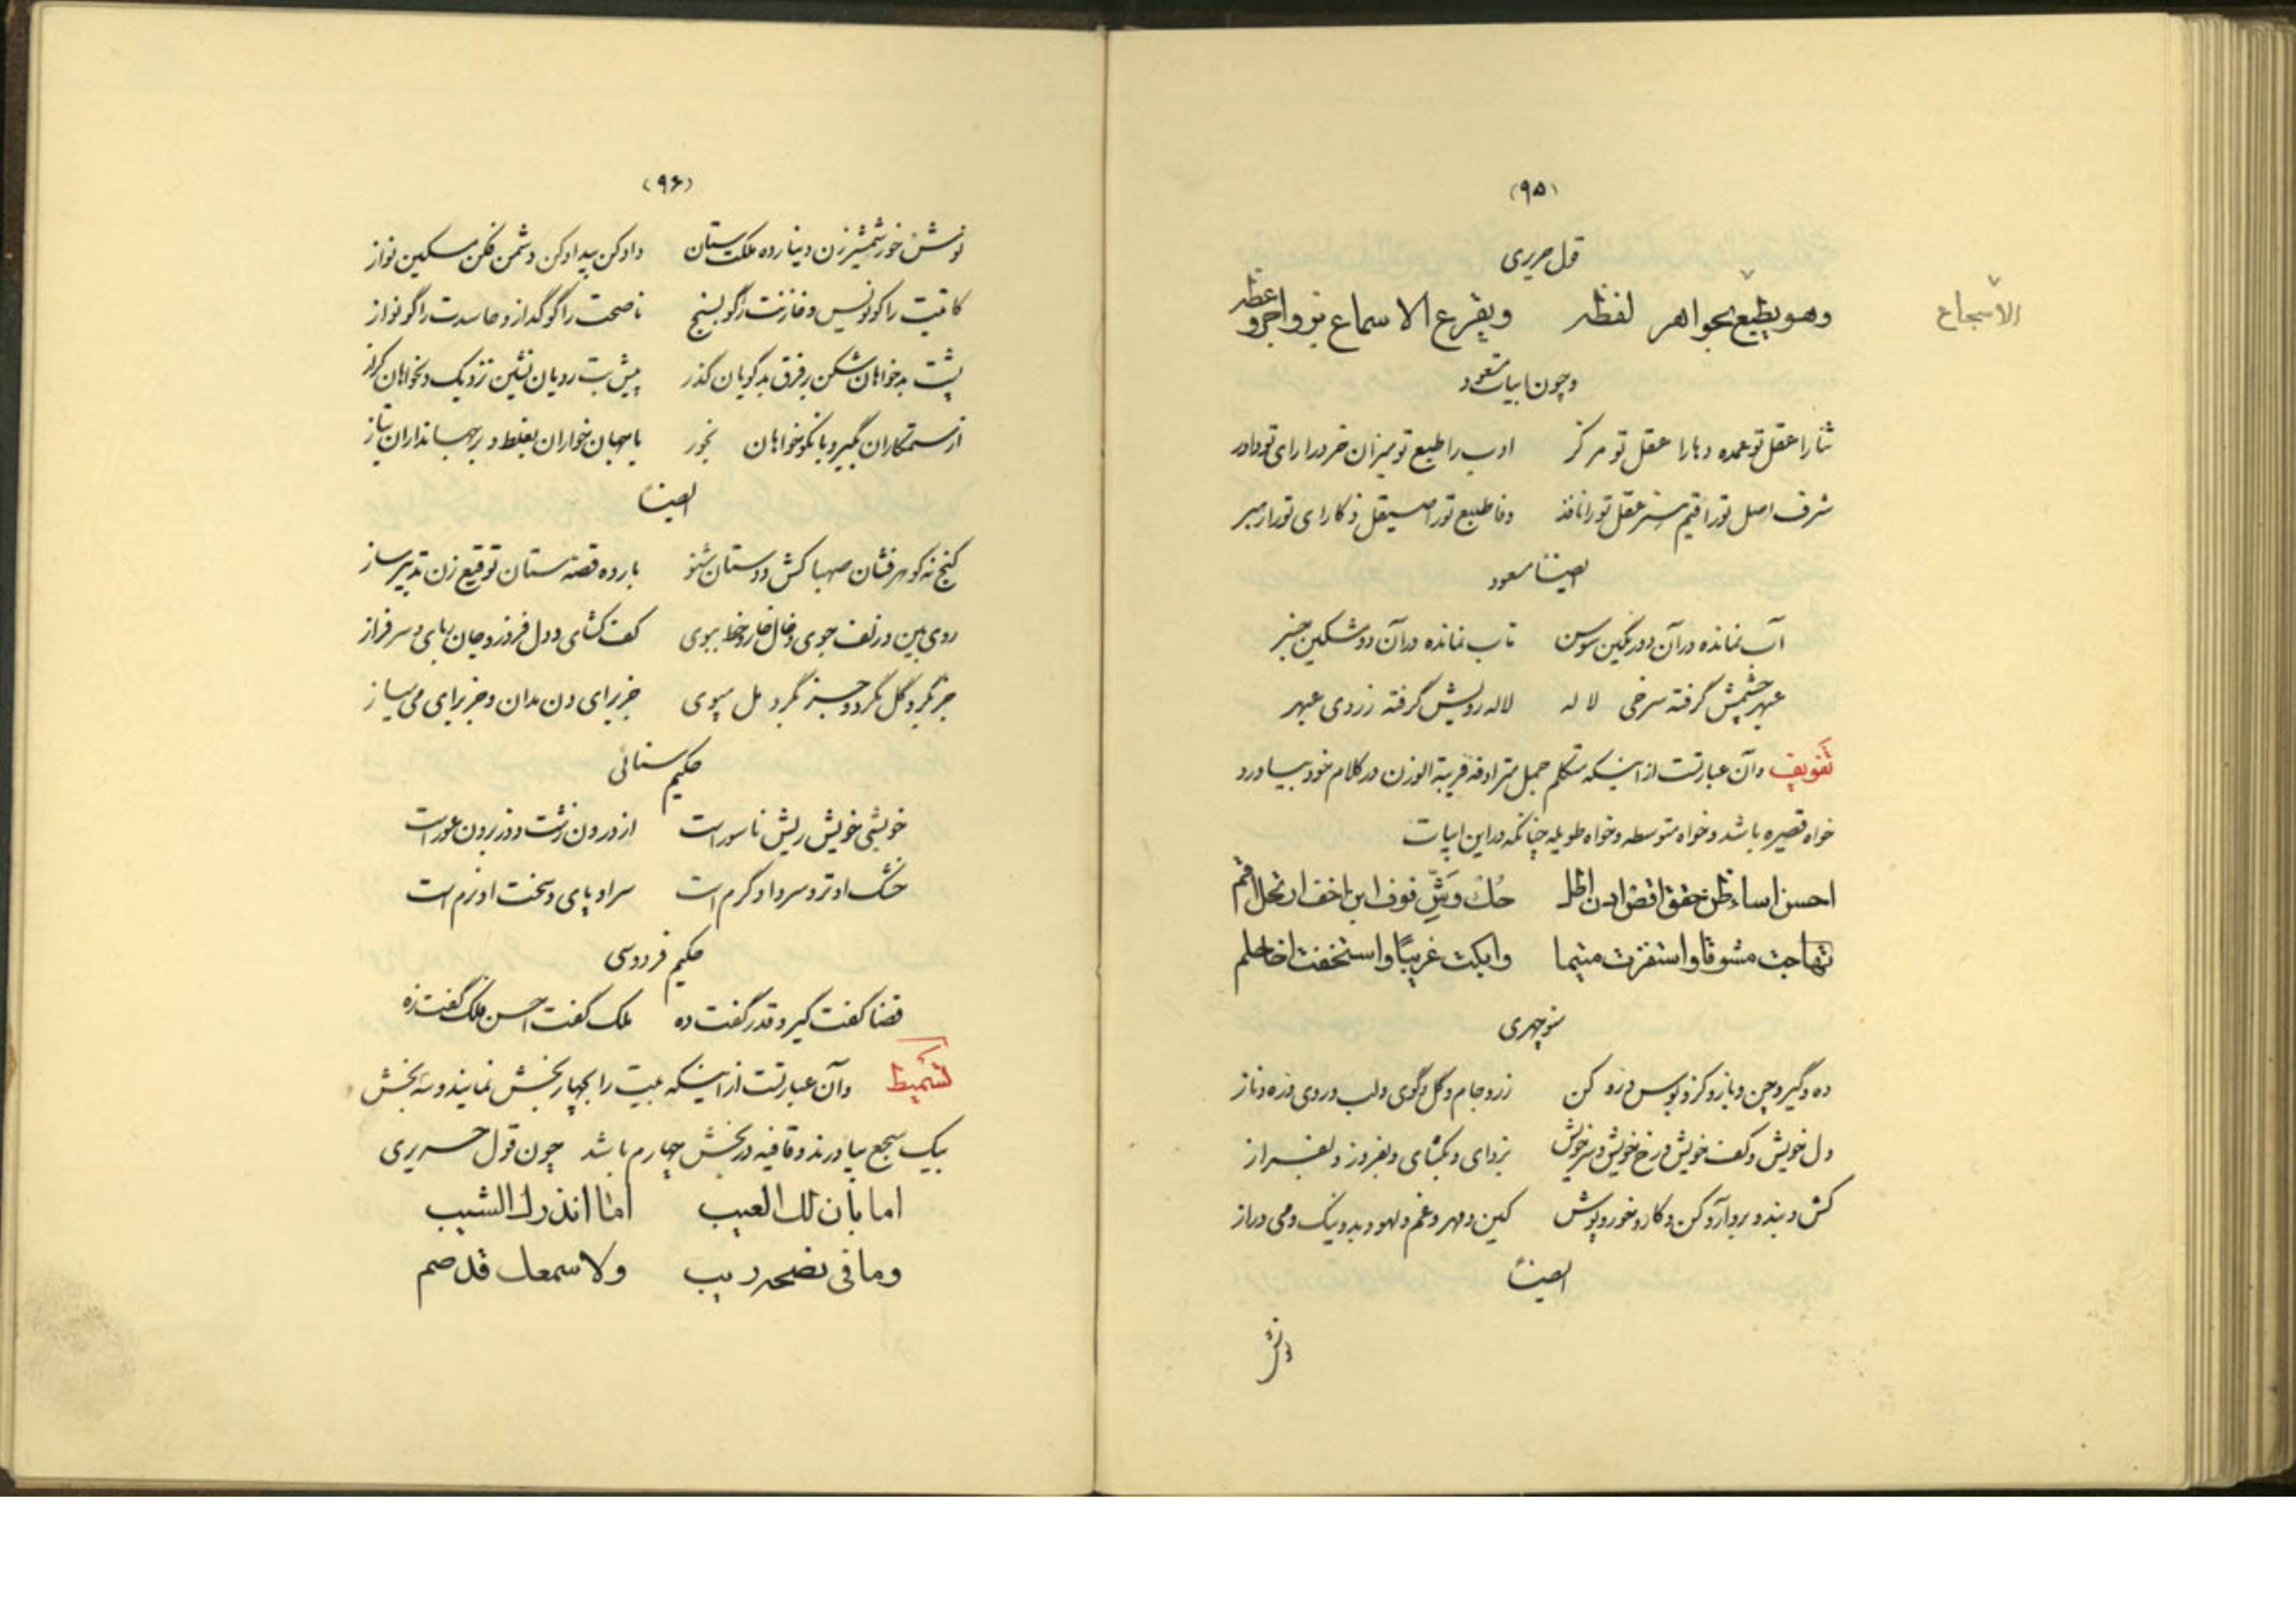 (۹۵)
قول حریری
وهو یطبع بجواهر لفظه ویقرع الاسماع بزواجر وعظه
الاسجاع
و چون ابیات مسعود
ثنا را عقل تو عمده دها را عقل تو مرکز ادب را طبع تو میزان خرد را رای تو داور
شرف اصل تو را قیم هنر عقل تو را نافذ وفا طبع تو را صیقل ذکا رای تو را رهبر
ایضاً مسعود
آب نمانده در آن دو رنگین سوسن تاب نمانده در آن دو مشکین چنبر
عبهر چشمش گرفته سرخی لاله لاله رویش گرفته زردی عبهر
تفویف و آن عبارتست از اینکه متکلم جمل مترادفه قریبة الوزن در کلام خود بیاورد
خواه قصیره باشد و خواه متوسطه و خواه طویله چنانکه در این ابیات
احسن اساء ظن حقق ادن اطل حك وشّ فوف ابن اخف ارتحل اقم
تهاجت مشوقا واستفزت متیما وابکت غریبًا واستخفت اخاحلم
منوچهری
ده و گیر و چن و باز و گز و بوس و رو کن زر و جام و گل و گوی و لب و روی و ره و ناز
دل خویش و کف خویش و رخ خویش و سر خویش بزدای و بگشای و بفروز و بفراز
کش و بند و بر و آر و کن و کار و خور و پوش کین و مهر و غم و لهو و بد و نیک و می و راز
ایضاً
نوش
(۹۶)
نوش خور شمشیر زن دینار ده ملک ستان داد کن بیداد کن دشمن فکن مسکین نواز
کاتبت را گو نویس و خازنت را گو بسنج ناصحت را گو گداز و حاسدت را گو نواز
پشت بدخواهان شکن بر فرق بدگویان گذر پیش بت رویان نشین نزدیک دلخواهان گراز
از ستمکاران بگیر و با نکو خواهان بخور با جهان خواران بغلط و بر جهانداران بتاز
ایضاً
گنج نه گوهر فشان صهبا کش و دستان شنو بار ده قصه ستان توقیع زن تدبیر ساز
روی بین و زلف جوی و خال خار و خط ببوی کف گشای و دل فروز و جان ربای و سر فراز
جز بگرد گل مگرد و جز بگرد مل مپوی جز برای دن مدان و جز برای می مساز
حکیم سنائی
خویشی خویش ریش ناسور است از درون زشت و وز برون عور است
خشک او تر و سرد او گرم است سر او پای و سخت او نرم است
حکیم فردوسی
قضا گفت گیر و قدر گفت ده ملک گفت احسن فلک گفت زه
تسمیط و آن عبارتست از اینکه بیت را بچهار بخش نمایند و سه بخش
بیک سجع بیاورند و قافیه در بخش چهارم باشد چون قول حریری
اما بان لك العیب اما انذرك الشیب
وما فی نصحه ریب ولا سمعك قد صم